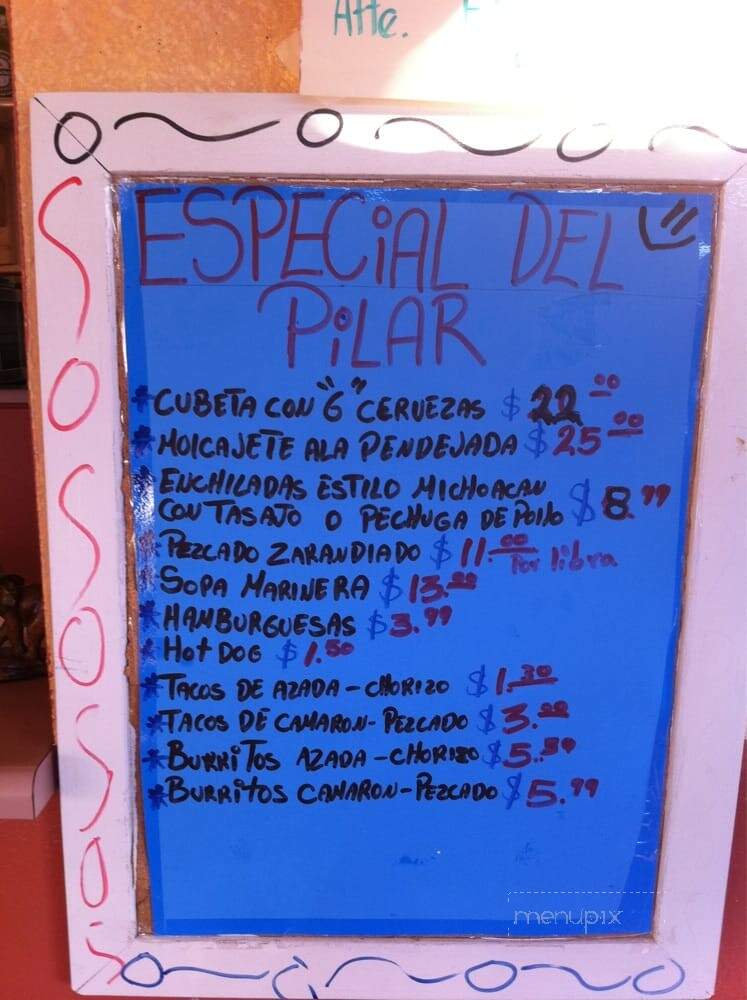 Atte.
ESPECiAL DEL
PiLAR
* CUBETA CON "6" CERVEZAS $ 22.00
* MOLCAJETE ALA PENDEJADA $ 25.00
* ENCHILADAS ESTILO MICHOACAN
CON TASAJO O PECHUGA DE POllO $ 8.99
* PEZCADO ZARANDIADO $ 11.00 Por libra
SOPA MARINERA $ 13.00
* HAMBURGUESAS $ 3.99
* HOt DOG $ 1.50
* TACOS DE AZADA - CHORIZO $ 1.30
* TACOS DE CAMARON - PEZCADO $ 3.00
* BURRiTOS AZADA - CHORIZO $ 5.50
* BURRitOS CAMARON - PEZCADO $ 5.99
menupix